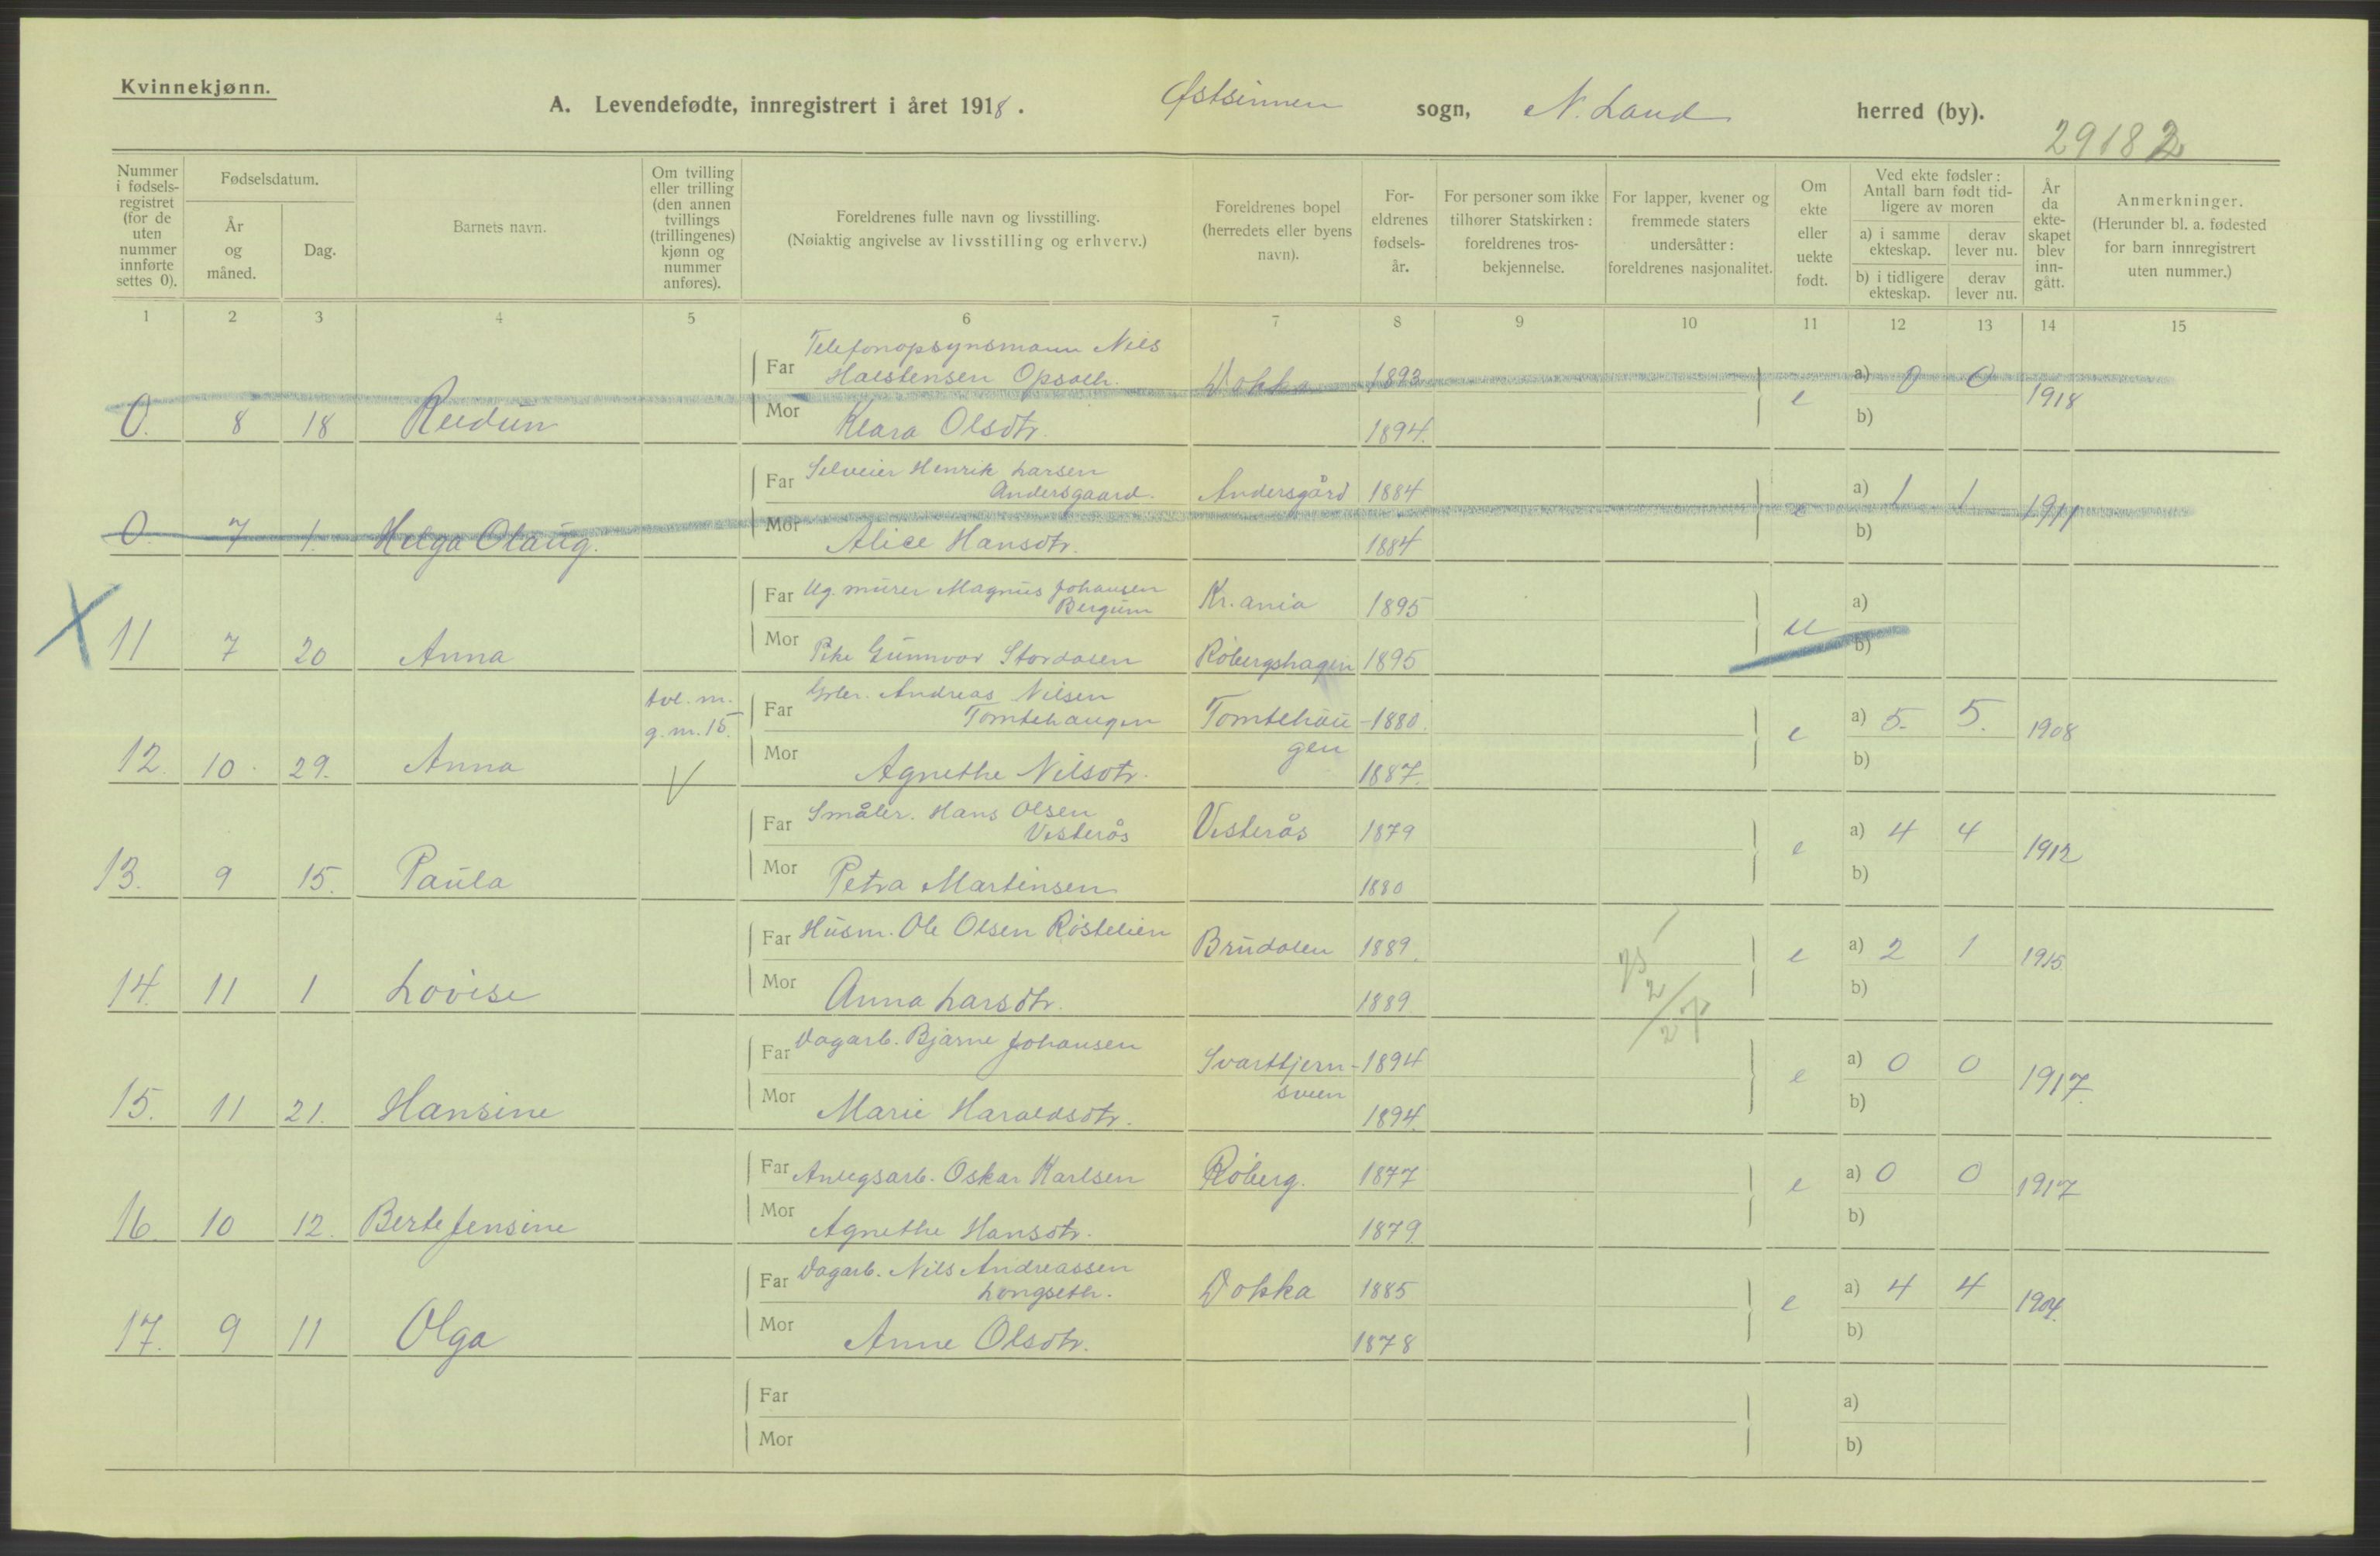 Kvinnekjønn.
A. Levendefødte, innregistrert i året 1918. Østsinnen sogn, N. Land herred (by).
29182
Nummer i fødsels-registret (for de uten nummer innførte settes 0).
Fødselsdatum.
År og måned.
Dag.
Barnets navn.
Om tvilling eller trilling (den annen tvillings (trillingenes) kjønn og nummer anføres).
Foreldrenes fulle navn og livsstilling.
(Nøiaktig angivelse av livsstilling og erhverv.)
Foreldrenes bopel (herredets eller byens navn).
For-eldrenes fødsels-år.
For personer som ikke tilhører Statskirken: foreldrenes tros-bekjennelse.
For lapper, kvener og fremmede staters undersåtter: foreldrenes nasjonalitet.
Om ekte eller uekte født.
Ved ekte fødsler: Antall barn født tid-ligere av moren
a) i samme ekteskap.
derav lever nu.
b) i tidligere ekteskap.
derav lever nu.
År da ekte-skapet blev inn-gått.
Anmerkninger.
(Herunder bl. a. fødested for barn innregistrert uten nummer.)
1 2 3 4 5 6 7 8 9 10 11 12 13 14 15
Telefonopsynsmann Nils
Far Halstensen Opsaeh. Dokka 1893 a) 0 0
0. 8 18 Reidun e 1918
Mor Klara Olsdtr. 1894. b)
Far Selveier Henrik Larsen
Andersgaard. Andersgård 1884 a) 1 1
0. 7 1. Helga Olaug. e 1911
Mor Alice Hansdtr. 1884 b)
Far Ug. murer Magnus Johansen
Bergum Kr.ania 1895 a)
X 11 7 20 Anna u
Mor Pike Gunnvor Stordalen Røbergshagen 1895 b)
tvl. m.
g. m. 15.
Far Andreas Nilsen
Tomtehaugen Tomtehau- 1880. a) 5. 5.
gen
12. 10. 29. Anna e 1908
Mor Agnethe Nilsdtr. 1887. b)
Far Småbr. Hans Olsen
Vesterås Vesterås 1879 a) 4 4
13. 9 15. Paula e 1912
Mor Petra Martinsen 1880 b)
Far Husm. Ole Olsen Røstelien Brudalen 1889. a) 2 1
14. 11 1 Lovise e 1915
Mor Anna Larsdtr. 1889 b)
Far Dagarb. Bjarne Johansen Svarttjern- 1894 a) 0 0
sveen
15. 11 21. Hansine e 1917.
Mor Marie Haraldsdtr. 1894. b)
Far Anlegsarb. Oskar Karlsen Røberg. 1877 a) 0 0
16. 10 12. Berte Jensine e 1917
Mor Agnethe Hansdtr. 1879. b)
Far Dagarb. Nils Andreassen
Longseth. Dokka 1885 a) 4 4
17. 9 11 Olga e 1904.
Mor Anne Olsdtr. 1878 b)
Far a)
Mor b)